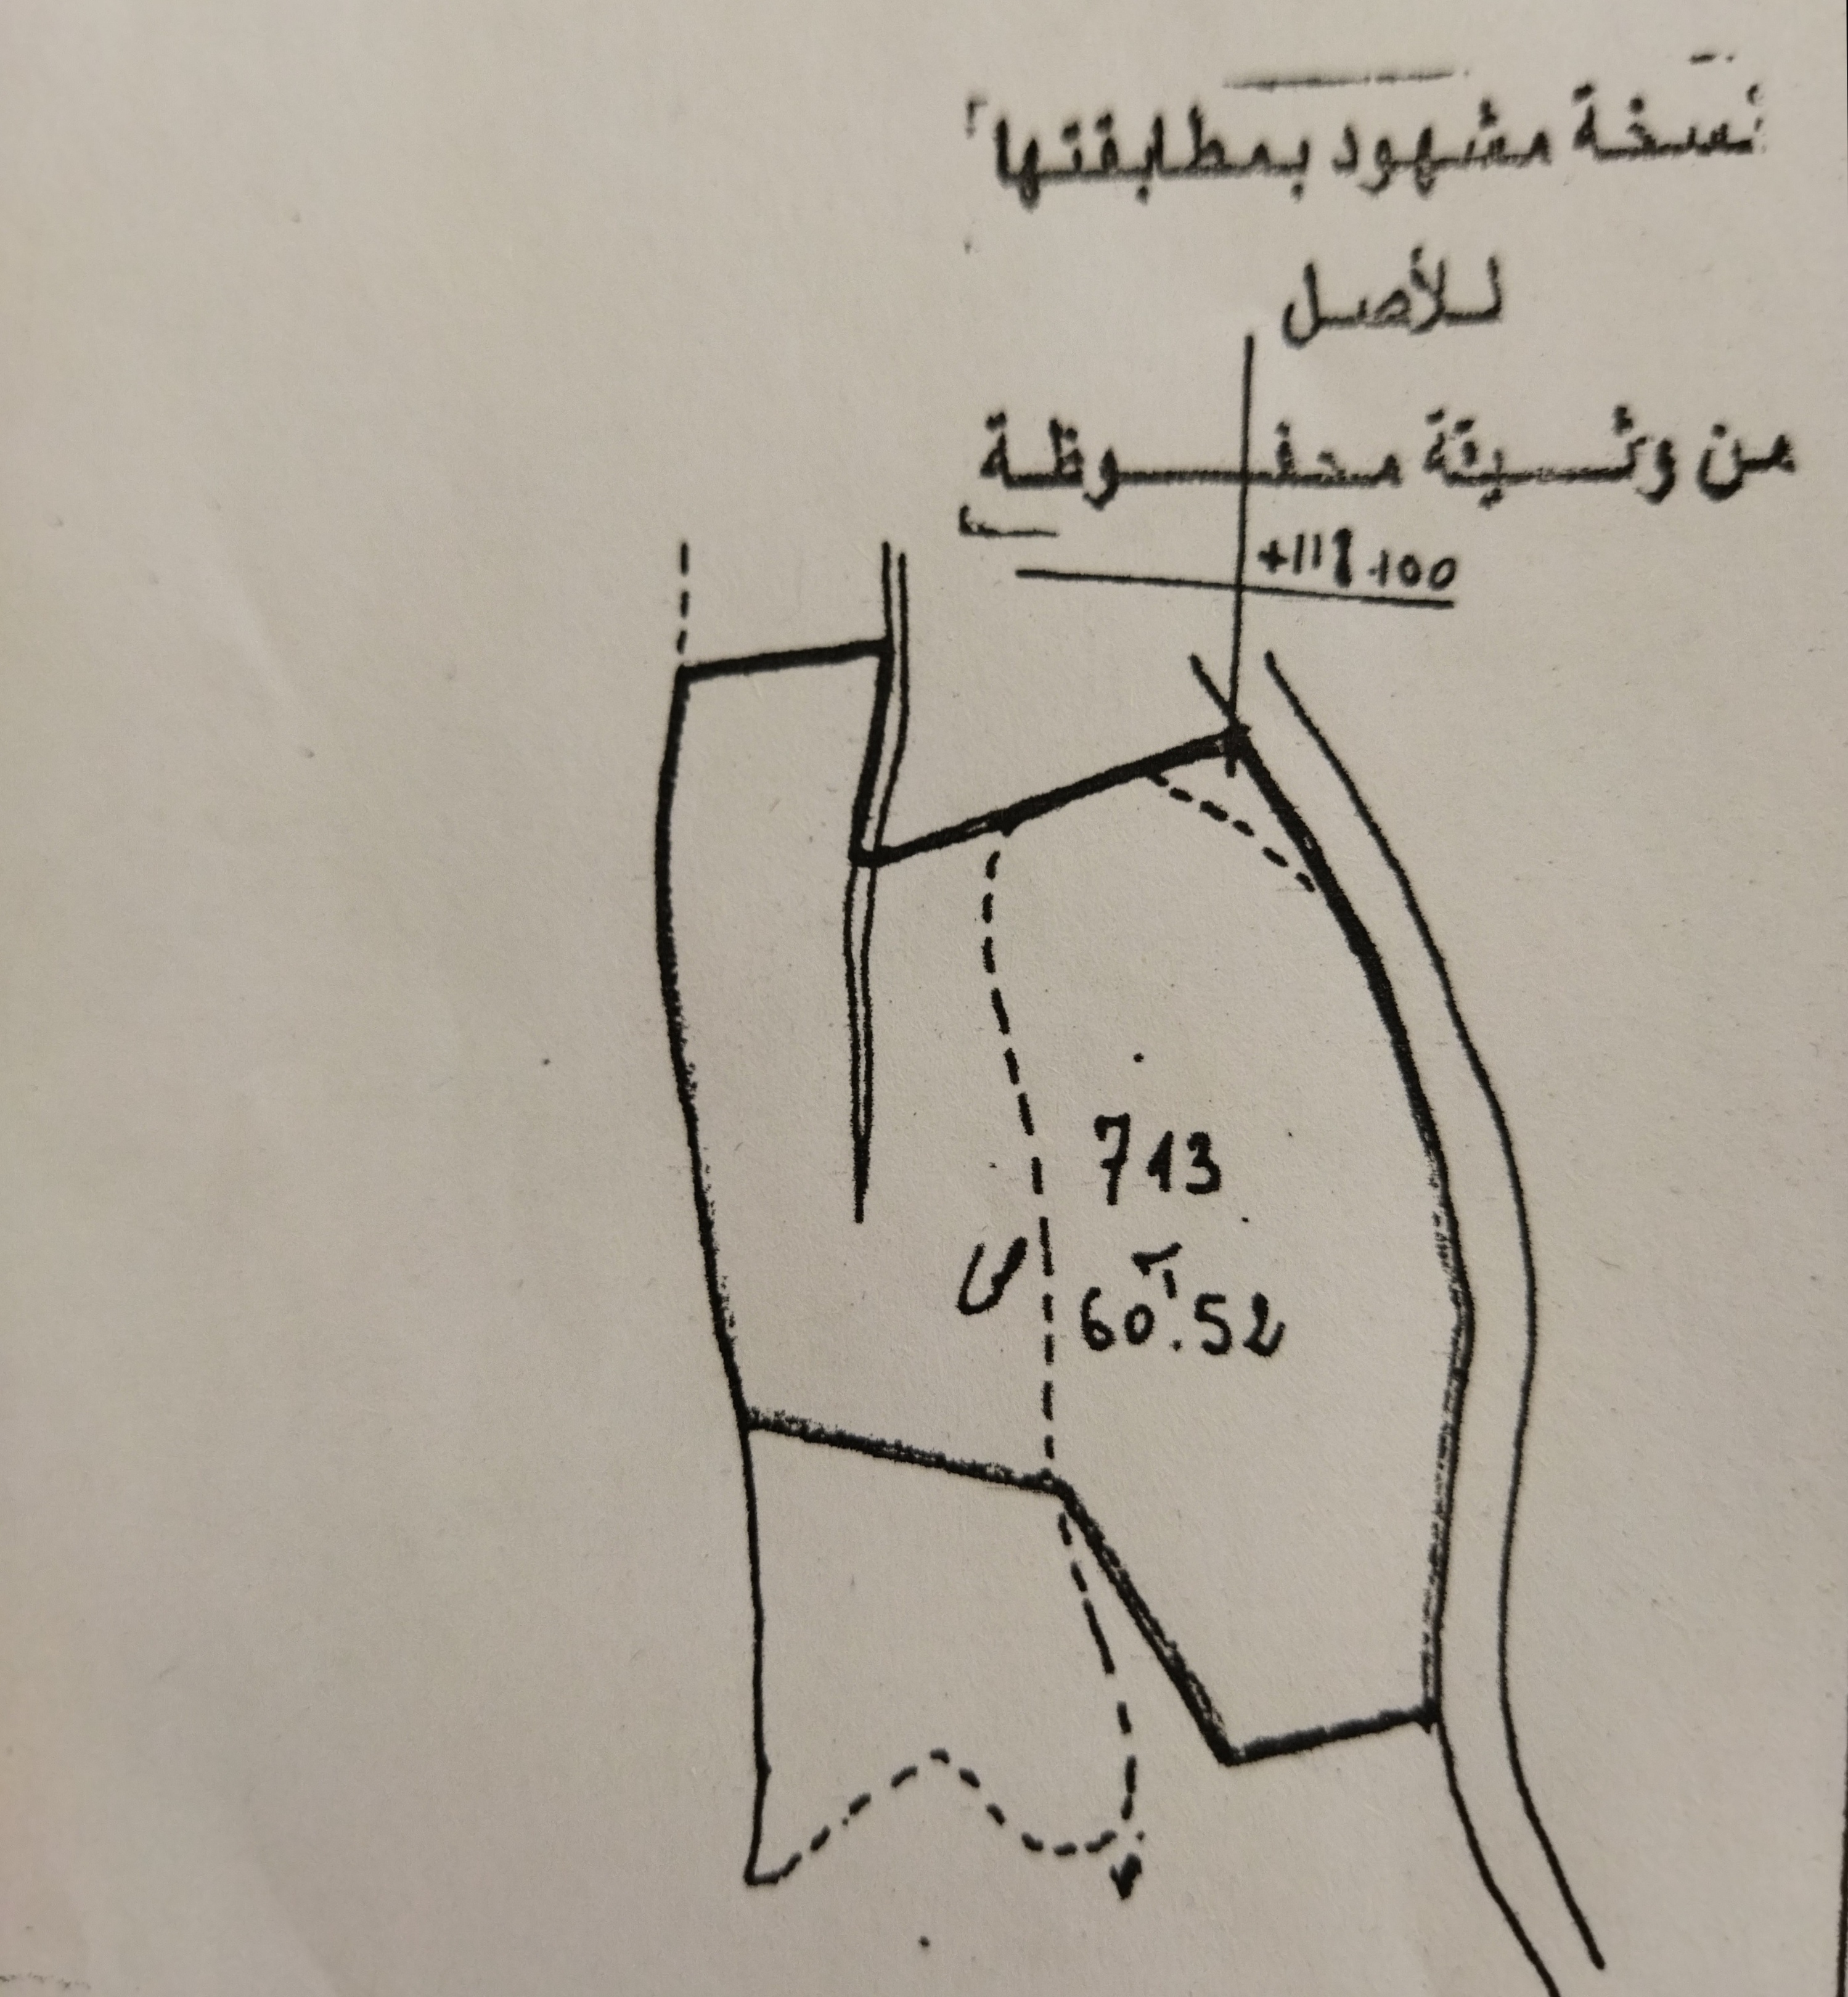 نسخة مشهود بمطابقتها
للأصل
من وثيقة محفوظة
713
60.52